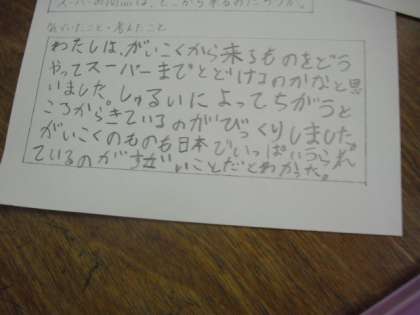 スーパーの商品は、どこから来るのだろうか。
気づいたこと・考えたこと
わたしは、がいこくから来るものをどう
やってスーパーまでとどけるのかなと思
いました。しゅるいによってちがうと
ころからきているのがびっくりしました。
がいこくのものも日本でいっぱいうられ
ているのがすごいことだとわかった。